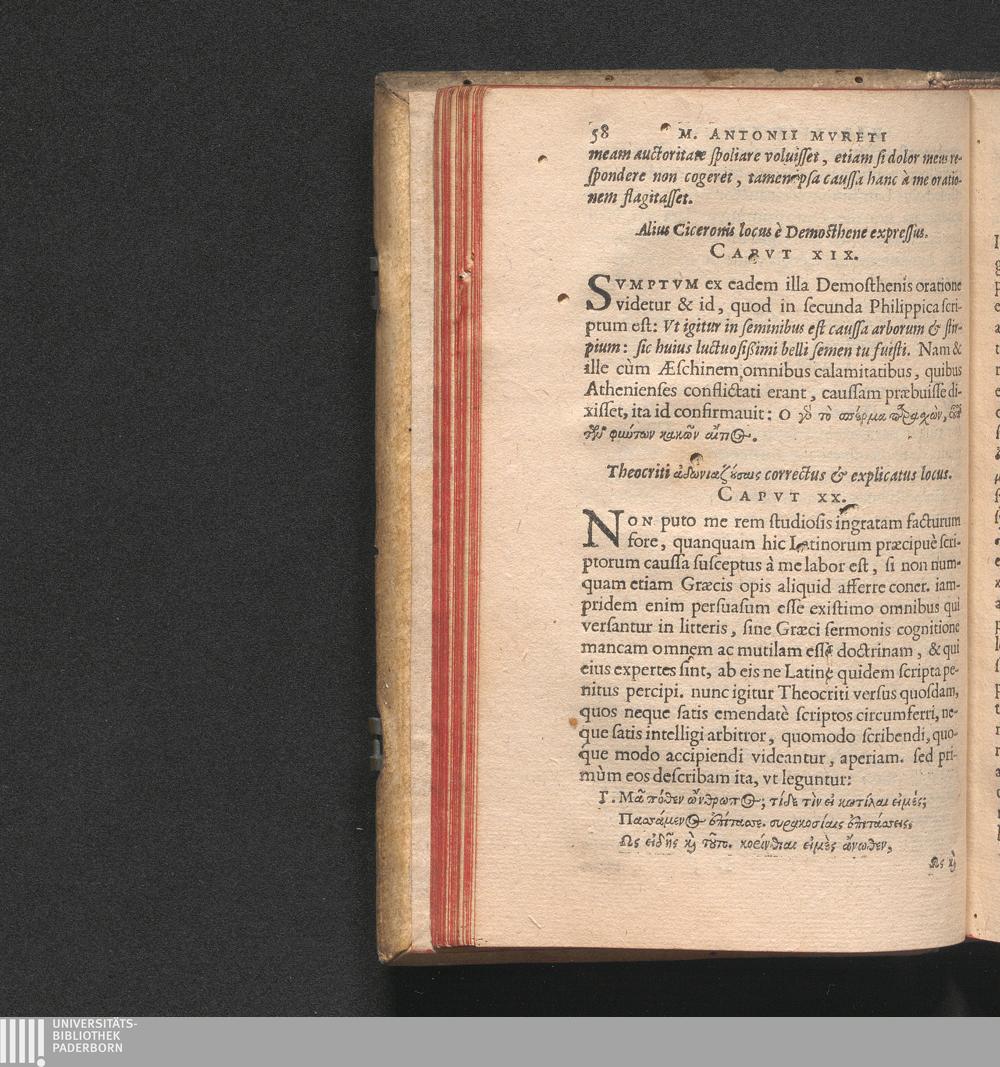 58 M. ANTONII MVRETI
meam auctoritate ſpoliare voluiſſet, etiam ſi dolor meus re-
ſpondere non cogeret, tamen ipſa cauſſa hanc à me oratio-
nem flagitaſſet.
Alius Ciceronis locus è Demoſthene expreſſus.
CAPVT XIX.
SVMPTVM ex eadem illa Demoſthenis oratione
videtur & id, quod in ſecunda Philippica ſcri-
ptum eſt: Vt igitur in ſeminibus eſt cauſſa arborum & ſtir-
pium: ſic huius luctuoſiſſimi belli ſemen tu fuiſti. Nam &
ille cùm Æſchinem omnibus calamitatibus, quibus
Athenienſes conflictati erant, cauſſam præbuiſſe di-
xiſſet, ita id confirmauit: Ο γὸ τὸ σπέρμα παραχὼν, οὗτος
τῶν φύντων κακῶν αἴτιος.
Theocriti ἀδωνιαζούσαις correctus & explicatus locus.
CAPVT XX.
NON puto me rem ſtudioſis ingratam facturum
fore, quanquam hic Latinorum præcipuè ſcri-
ptorum cauſſa ſuſceptus à me labor eſt, ſi non num-
quam etiam Græcis opis aliquid afferre coner. iam-
pridem enim perſuaſum eſſe exiſtimo omnibus qui
verſantur in litteris, ſine Græci ſermonis cognitione
mancam omnem ac mutilam eſſe doctrinam, & qui
eius expertes ſint, ab eis ne Latinè quidem ſcripta pe-
nitus percipi. nunc igitur Theocriti verſus quoſdam,
quos neque ſatis emendatè ſcriptos circumferri, ne-
que ſatis intelligi arbitror, quomodo ſcribendi, quo-
que modo accipiendi videantur, aperiam. ſed pri-
mùm eos deſcribam ita, vt leguntur:
Γ. Μᾶ πόθεν ὥνθρωπος; τί δὲ τὶν εἰ κωτίλαι εἰμές;
Πασσάμενος ἐπίτασσε. συρακοσίαις ἐπιτάσσεις;
Ως εἰδῆς καὶ τοῦτο. κορίνθιαι εἰμὲς ἄνωθεν,
Ως καὶ
UNIVERSITÄTS-
BIBLIOTHEK
PADERBORN